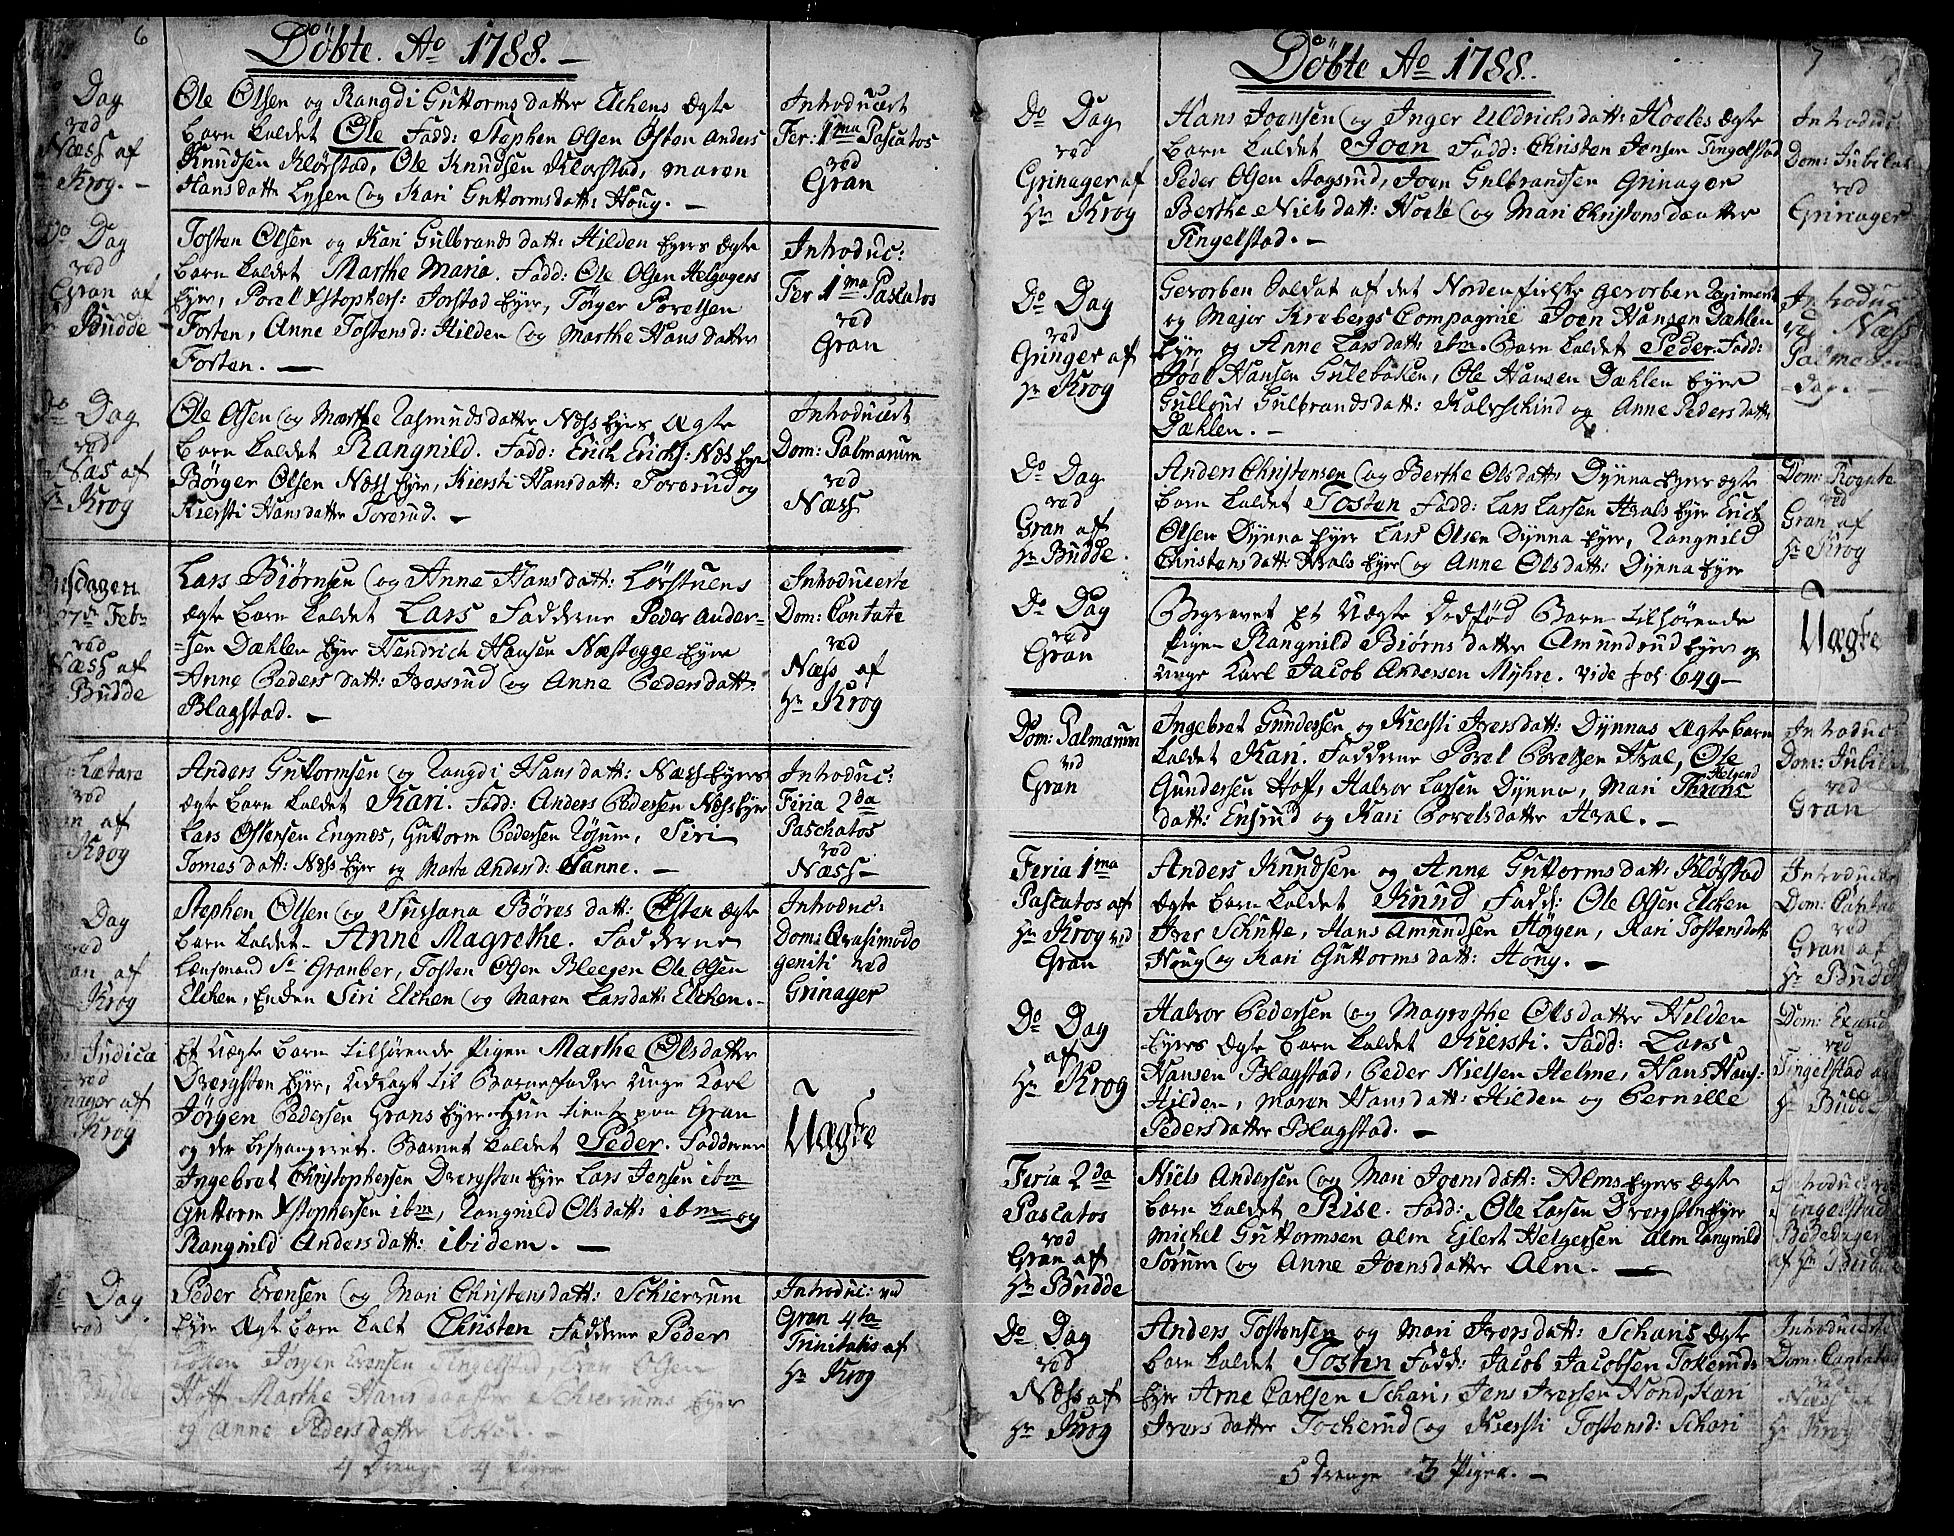 6
Döbte. Ao 1788.
Dag
ved
Næss af
Krog.
Ole Olsen og Rangdi Guttorms datter Elchens Ægte
barn kaldet Ole Fadd: Stephen Olsen Østen Anders
Knudsen Klørstad, Ole Knudsen Klørstad, Maren
Hansdatt: Lysen og Kari Guttormsdatt: Houg.
Introducert
Fer: 1ma Pascatos
ved
Gran
Do Dag
ved
Gran af
Budde
Tosten Olsen og Kari Gulbrands datt: Hilden Eyers Ægte
barn kaldet Marthe Maria. Fadd: Ole Olsen Helgagers
Eyer, Povel Xstophers: Jorstad Eyer, Törger Povelsen
Forten, Anne Tostensd: Hilden og Marthe Hans datter
Forten.
Introduc:
Fer 1ma Pascatos
ved
Gran
Do Dag
ved
Næs af
Hr Krog
Ole Olsen og Marthe Rasmundsdatter Næss Eyers Ægte
barn kaldet Rangnild. Fadd: Erich Erichs: Næs Eyer
Börger Olsen Næss Eyer, Kiersti Hansdatt: Tovrud og
Kiersti Hansdatter Tovrud.
Introducert
Dom: Palmarum
ved
Næss
Onsdagen
27de Feb
ved
Næss af
Budde
Lars Biörnsen og Anne Hansdatt: Lörstuens
ægte barn kaldet Lars Fadderne Peder Ander-
=sen Dæhlen Eyer Hendrich Hansen Næstegge Eyer
Anne Peders datt: Iversrud og Anne Pedersdatt:
Blagstad.
Introducerte
Dom: Cantate
ved
Næss af
Hr Krog
Lætare
ved
Gran af
Krog
Anders Guttormsen og Rangdi Hans datt: Næss Eyers
ægte barn kaldet Kari. Fadd: Anders Pedersen Næss Eyer
Lars Østensen Engnæs, Guttorm Pedersen Røsum, Siri
Tomes datt: Næss Eyer og Marte Andersd: Sanne.
Introduc:
Feria 2da
Paschatos
ved
Næss
Dag
ved
Gran af
Krog
Stephen Olsen og Sussana Börres datt: Østen Ægte
barn kaldet Anne Magrethe. Fadderne
Lænsmand Sr Granber, Tosten Olsen Bleegen Ole Olsen
Elchen, Enden Siri Elchen og Maren Larsdatt: Elchen.
Introduc:
Dom: Qvasimodo
geniti ved
Grinager
Judica
ved
Grinager af
Krog
Et Uægte barn tilhørende Pigen Marthe Olsdatter
Dvergsten Eyer, Udlagt til Barnefader Unge Karl
Jörgen Pedersen Grans Eyer. Hun tiente paa Gran
og der besvangeret. Barnet kaldet Peder. Fadderne
Ingebret Christophersen Dvergsten Eyer Lars Jensen ibm
Guttorm Xstophersen ibm, Rangnild Olsdatt: ibm og
Rangnild Andersdatt: ibidem.
Uægte
Dag.
ved
Budde
Peder Evensen og Mari Christensdatt: Schierrum
Eyer Ægte barn kalt Christen Fadderne Peder
Jörgen Evensen Tingelstad Even Olsen
Hoff Marthe Hans Schierrums Eyer
og Anne Pedersdatter
4 Drenge 4 Piger
Introduc: ved
Gran 4ta
Trinitatis af
Hr Krog
7
Döbte Ao 1788.
Do Dag
ved
Grinager af
Hr Krog
Hans Joensen og Inger Uldrichsdatt: Hoeles Ægte
barn kaldet Joen Fadd: Christen Jensen Tingelstad
Peder Olsen Stagsrud, Joen Gulbrandsen Grinager
Berthe Niels datt: Hoele og Mari Christens daatter
Tingelstad.
Introduc
Dom: Jubilat
ved
Grinager
Do Dag
ved
Gringer af
Hr Krog
Gevorben Soldat af det Nordenfielske gevorben Regiment
og Major Krebergs Compagnie Joen Hansen Dæhlen
Eyer og Anne Larsdatt: ibm. Barn kaldet Peder Fadd:
Joel Hansen Gulebøken, Ole Hansen Dæhlen Eyer
Gullour Gulbrandsdatt: Kalvschind og Anne Peders datt:
Dæhlen.
Introduc
ved Næss
Palme Sön
dag.
Do Dag
ved
Gran af
Hr Budde.
Anden Christensen og Berthe Olsdatt: Dynna Eyers Ægte
barn kaldet Tosten Fadd: Lars Larsen Hvals Eyer Erich
Olsen Dynna Eyer Lars Olsen Dynna Eyer, Rangnild
Christensdatt: Hvals Eyer og Anne Olsdatt: Dynna Eyer
Dom: Rogate
ved
Gran af
Hr Krog
Do Dag
ved
Gran
Begravet Et Uægte Dødfød Barn tilhørende
Pigen Rangnild Biörns datter Amundrud Eyer og
Unge Karl Jacob Andersen Myhre. vide fol 649
Uægte
Dom: Palmarum
ved
Gran
Ingebret Gundersen og Kiersti Iversdatt: Dynnas Ægte barn
kaldet Kari. Fadderne Povel Povelsen Hval, Ole
Gundersen Hoff, Halvor Larsen Dynna, Mari Throns
Helgend
datt: Ensrud og Kari Povelsdatter Hval.
Introduc
Dom: Jubilat
ved
Gran
Feria 1ma
Pascatos af
Hr Krog ved
Gran
Anders Knudsen og Anne Guttorms datt: Kløfstad
Ægte barn kaldet Knud Fadd: Ole Olsen Elchen
Iver Schütte, Hans Amundsen Hörgen, Kari Tostensdatt:
Houg og Kari Guttormsdatt: Houg.
Introduce
Dom: Cantat
ved
Gran af
Hr Budde
Do Dag
af
Hr Krog
Halvor Pedersen og Magrethe Olsdatter Hilden
Eyers Ægte barn kaldet Kiersti. Fadd: Lars
Hansen Blagstad, Peder Nielsen Helme, Hans Hans:
Hilden, Maren Hansdatt: Hilden og Pernille
Pedersdatter Blagstad.
Dom: Exaud
ved
Tingelstad af
Hr Budde
Feria 2da
Pascatos
ved
Gran af
Hr Budde
Niels Andersen og Mari Joensdatt: Alms Eyers Ægte
barn kaldet Rise. Fadd: Ole Larsen Dvergsten Eyer
Michel Guttormsen Alm Ejlert Helgersen Alm Rangnild
Sørum og Anne Joensdatter Alm.
Introduc: ved
Tingelstad
Bededagen
af Hr Budde
Do Dag
ved
Næss af
Hr Krog
Anders Tostensen og Mari Iversdatt: Scharis Ægte
barn kaldet Tosten Fadd: Jacob Jacobsen Tokeruds
Eyer Arne Carlsen Schari, Jens Iversen Hond, Kari
Ivers datter Tockerud og Kiersti Tostensd: Schari
5 Drenge 3 Piger.
Introducerte
Dom: Cantate
ved
Næss af
Hr Krog